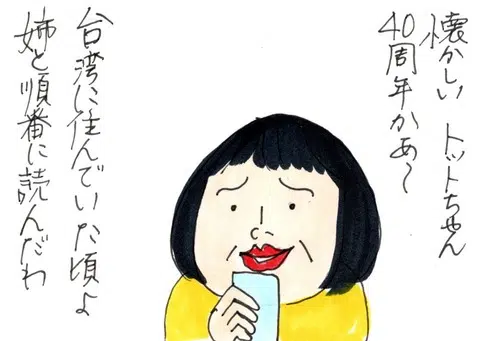 懐かしい トットちゃん
40周年かあ〜
台湾に住んでいた頃よ
姉と順番に読んだわ